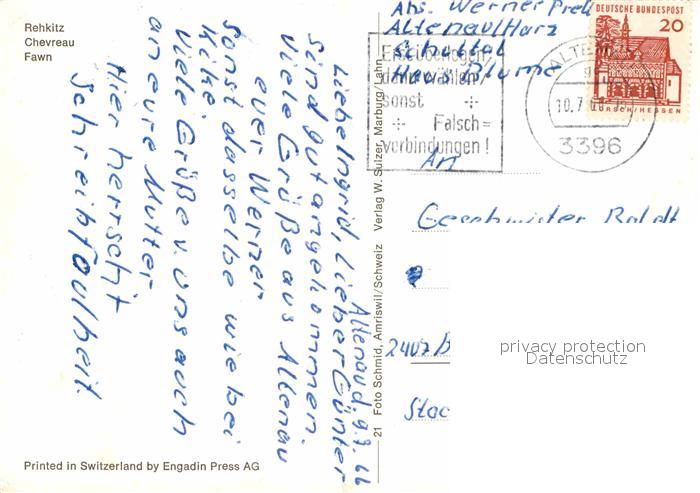 Rehkitz
Chevreau
Fawn
Altenau d. 9.7.66
Liebe Ingrid, Lieber Günter
Sind gut angekommen.
Viele Grüße aus Altenau
euer Werner
Sonst dasselbe wie bei
Kike.
Viele Grüße v. uns auch
an eure Mutter
Hier herrscht
Schreibfaulheit.
Printed in Switzerland by Engadin Press AG
21 Foto Schmid, Amriswil/Schweiz Verlag W. Sulzer, Marburg/Lahn
Abs. Werner
Altenau/Harz
Schultal
Haus Blume
Erst überlegen,
dann wählen
sonst
Falsch=
verbindungen!
ALTENAU
10.7.66
3396
DEUTSCHE BUNDESPOST
20
LORSCH/HESSEN
An
Geschwister
2407 B
privacy protection
Datenschutz